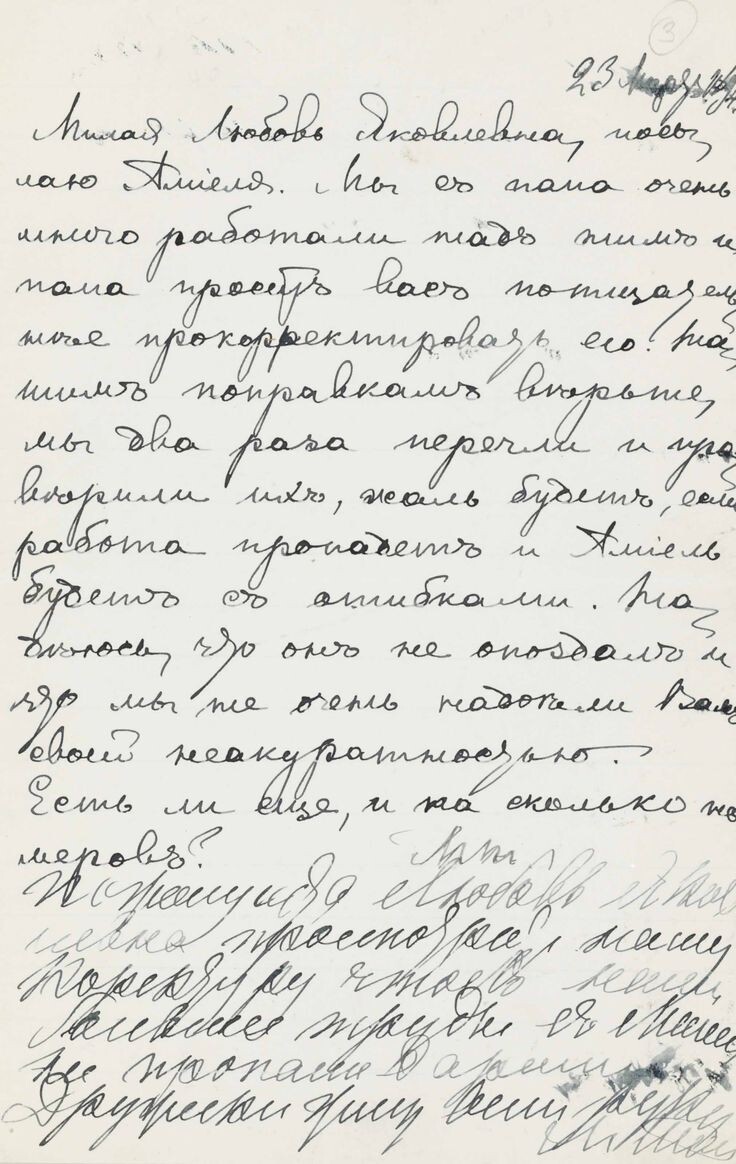 3
23 Марта
Милая Любовь Яковлевна, посы
лаю Аміеля. Мы съ папа очень
много работали надъ нимъ и
папа проситъ васъ потщатель
нѣе прокорректировать его. На
шимъ поправкамъ вѣрьте,
мы два раза перечли и про
вѣрили ихъ, жаль будетъ, если
работа пропадетъ и Аміель
будетъ съ ошибками. На
дѣюсь, что онъ не опоздалъ и
что мы не очень надоѣли Вамъ
своей неакуратностью.
Есть ли еще, и на сколько но
меровъ?
Пожалуйста Любовь Яков
левна просмотрите нашу
коректуру чтобъ наши
труды съ Машей
не пропали даромъ
Дружески жму вашу руку